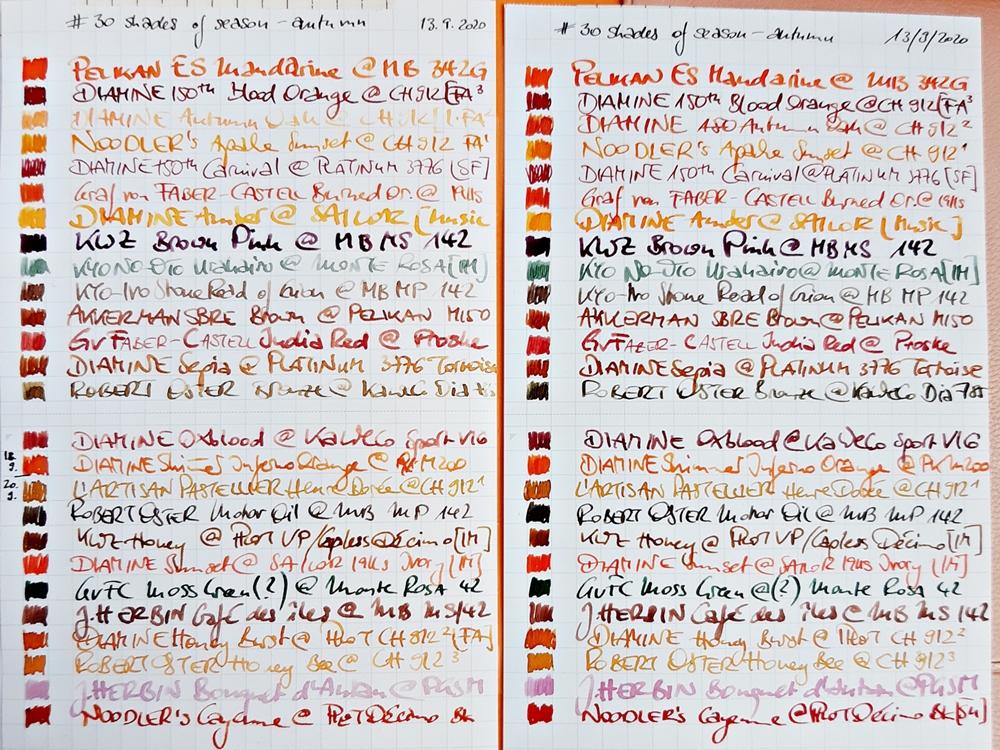 # 30 shades of season - autumn 13.9.2020
PELIKAN ES Mandarine @ MB 342G
DIAMINE 150th Blood Orange @ CH 912 [FA³
DIAMINE Autumn Oak @ CH 912 [FA²
NOODLER'S Apache Sunset @ CH 912 FA¹
DIAMINE 150th Carnival @ PLATINUM 3776 [SF]
Graf von FABER-CASTELL Burned Or. @ 1911s
DIAMINE Amber @ SAILOR [Music
KWZ Brown Pink @ MB MS 142
KYO NO-OTO Urahairo @ MONTE ROSA [M]
KYO-Iro Stone Road of Gion @ MB MP 142
AKKERMAN SBRE Brown @ PELIKAN M150
GvFABER-CASTELL India Red @ Proske
DIAMINE Sepia @ PLATINUM 3776 Tortoise
ROBERT OSTER Bronze @ KaWeCo Dia
DIAMINE Oxblood @ KaWeCo Sport V16
18.9. DIAMINE Shimmer Inferno Orange @ M200
20.9. L'ARTISAN PASTELLIER Henre Dorée @ CH 912¹
ROBERT OSTER Motor Oil @ MB MP 142
KWZ-Honey @ PILOT VP/Capless Décimo [M]
DIAMINE Sunset @ SAILOR 1911s Ivory [M]
GvFC Moss Green (?) @ Monte Rosa 42
J.HERBIN Café des îles @ MB MS 142
DIAMINE Honey Burst @ PILOT CH 912² [FA]
ROBERT OSTER Honey Bee @ CH 912³
J.HERBIN Bouquet d'Antan @ PRISM
NOODLER'S Cayenne @ PILOT Décimo BK
# 30 shades of season - autumn 13/9/2020
PELIKAN ES Mandarine @ MB 342G
DIAMINE 150th Blood Orange @ CH 912 [FA³
DIAMINE 150 Autumn Oak @ CH 912²
NOODLER'S Apache Sunset @ CH 912¹
DIAMINE 150th Carnival @ PLATINUM 3776 [SF]
Graf von FABER-CASTELL Burned Or. @ 1911s
DIAMINE Amber @ SAILOR [Music]
KWZ Brown Pink @ MB MS 142
KYO NO-OTO Urahairo @ MONTE ROSA [M]
KYO-Iro Stone Road of Gion @ MB MP 142
AKKERMAN SBRE Brown @ PELIKAN M150
GvFABER-CASTELL India Red @ Proske
DIAMINE Sepia @ PLATINUM 3776 Tortoise
ROBERT OSTER Bronze @ KaWeCo Dia
DIAMINE Oxblood @ KaWeCo Sport V16
DIAMINE Shimmer Inferno Orange @ M200
L'ARTISAN PASTELLIER Henre Dorée @ CH 912¹
ROBERT OSTER Motor Oil @ MB MP 142
KWZ Honey @ PILOT VP/Capless Décimo [M]
DIAMINE Sunset @ SAILOR 1911s Ivory [M]
GvFC Moss Green @ (?) Monte Rosa 42
J.HERBIN Café des îles @ MB MS 142
DIAMINE Honey Burst @ PILOT CH 912²
ROBERT OSTER Honey Bee @ CH 912³
J.HERBIN Bouquet d'Antan @ PRISM
NOODLER'S Cayenne @ PILOT Décimo BK